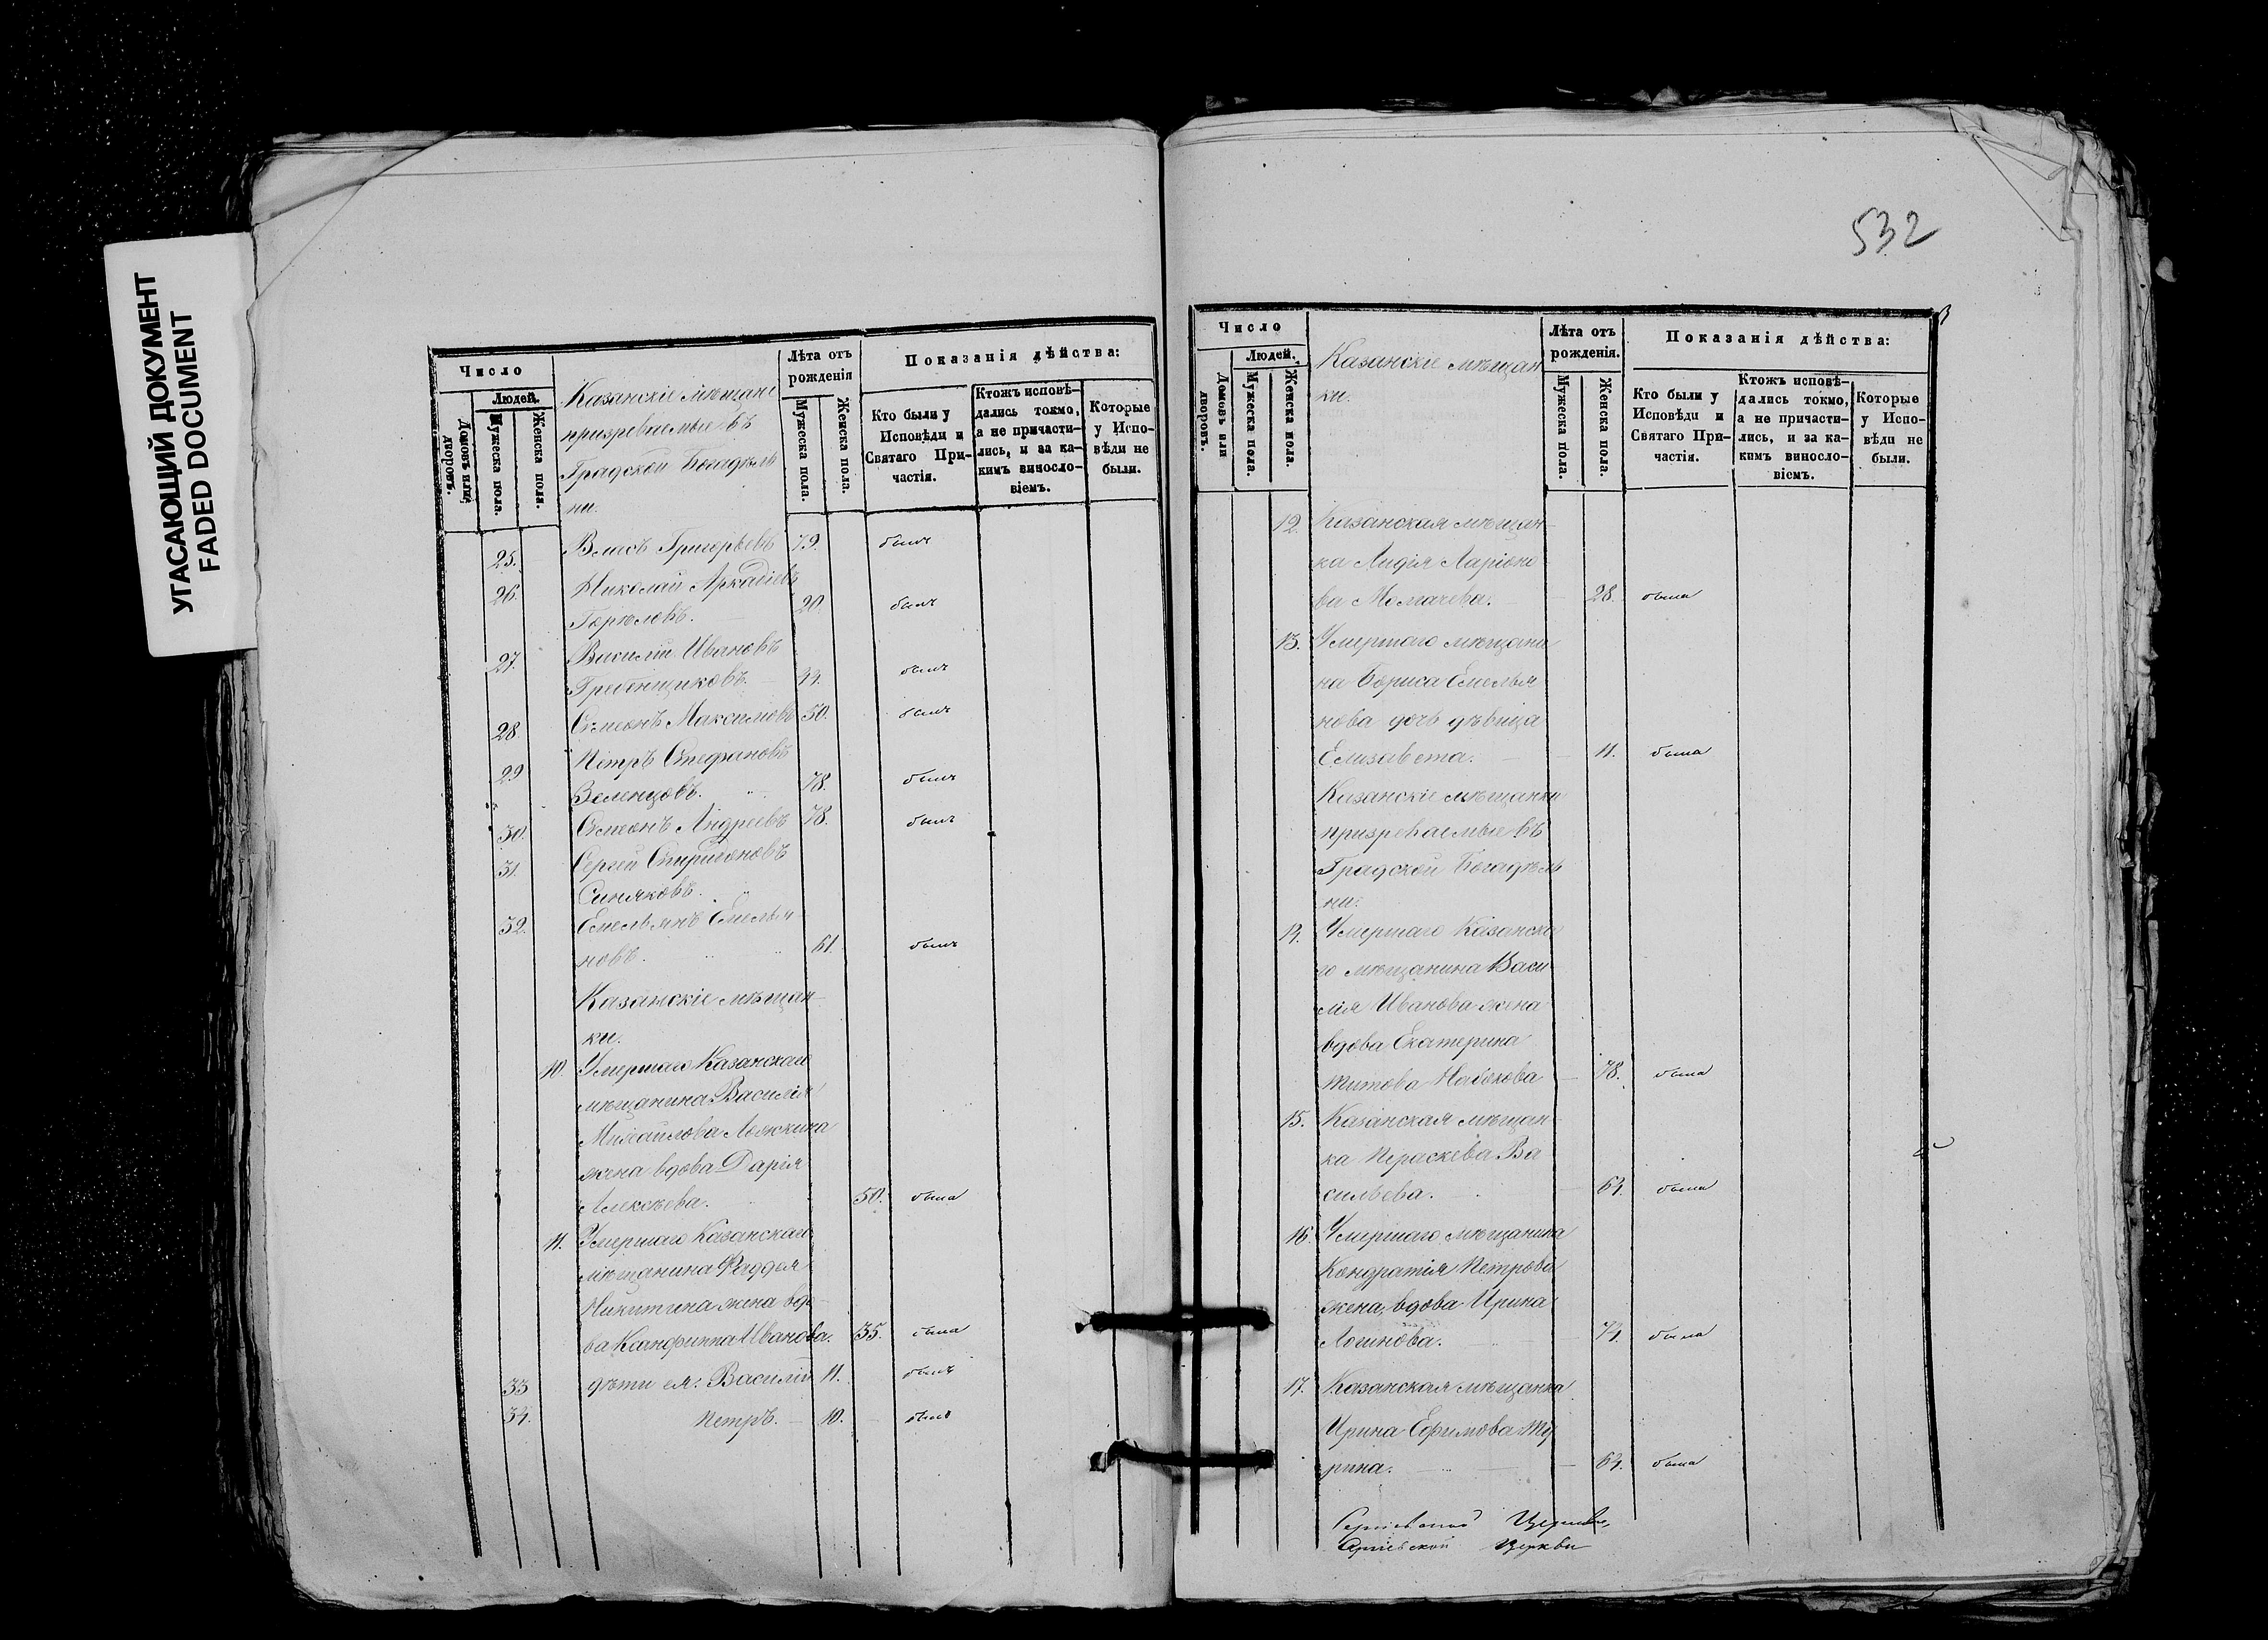 УГАСАЮЩИЙ ДОКУМЕНТ
FADED DOCUMENT
Число
Людей.
Домовъ или дворовъ.
Мужеска пола.
Женска пола.
Казанскіе мѣщане
призреваемые въ
Градской Богадѣль
ни.
Лѣта отъ рожденія
Мужеска пола.
Женска пола.
Показанія дѣйства:
Кто были у Исповѣди и Святаго При-частія.
Ктожъ исповѣ-дались токмо, а не причасти-лись, и за ка-кимъ винослo-віемъ.
Которые у Испо-вѣди не были.
25. Власъ Григорьевъ 79. былъ
26. Николай Аркадіевъ
Горѣловъ. 20. былъ
27. Василій Ивановъ
Гребенщиковъ. 44. былъ
28. Симеонъ Максимовъ 50. былъ
29 Петръ Стефановъ
Зеленцовъ. 78. былъ
30. Симеонъ Андреевъ 78. былъ
31. Сергей Спиридоновъ
Синяковъ.
32. Емельянъ Емелья-
новъ. 61. былъ
Казанскіе мѣщан-
ки.
10. Умершаго Казанскаго
мѣщанина Василія
Михайлова Ложкина
жена вдова Дарія
Алексѣева. 50. была
11. Умершаго Казанскаго
мѣщанина Фаддея
Никитина жена вдо-
ва Ксанфиппа Иванова. 35. была
33 дѣти ея: Василій 11. былъ
34. Петръ. 10. былъ
532
Число
Людей.
Домовъ или дворовъ.
Мужеска пола.
Женска пола.
Казанскіе мѣщан
ки.
Лѣта отъ рожденія.
Мужеска пола.
Женска пола.
Показанія дѣйства:
Кто были у Исповѣди и Святаго При-частія.
Ктожъ исповѣ-дались токмо, а не причасти-лись, и за ка-кимъ винослo-віемъ.
Которые у Испо-вѣди не были.
12. Казанская мѣщан-
ка Лидія Ларіоно
ва Молчева. 28. была
13. Умершаго мѣщани
на Бориса Емелья
нова дочь дѣвица
Елизавета. 11. была
Казанскіе мѣщанки
призреваемые въ
Градской Богадѣль
ни.
14. Умершаго Казанска
го мѣщанина Васи-
лія Иванова жена
вдова Екатерина
Титова Набокова 78. была
15. Казанская мѣщан-
ка Параскева Ва
сильева. 64. была
16. Умершаго мѣщанина
Кондратія Петрова
жена, вдова Ирина
Логинова. 74. была
17. Казанская мѣщанка
Ирина Ефимова Ту
рина. 64. была
Сергіевской Церкви,
Сергіевской Церкви